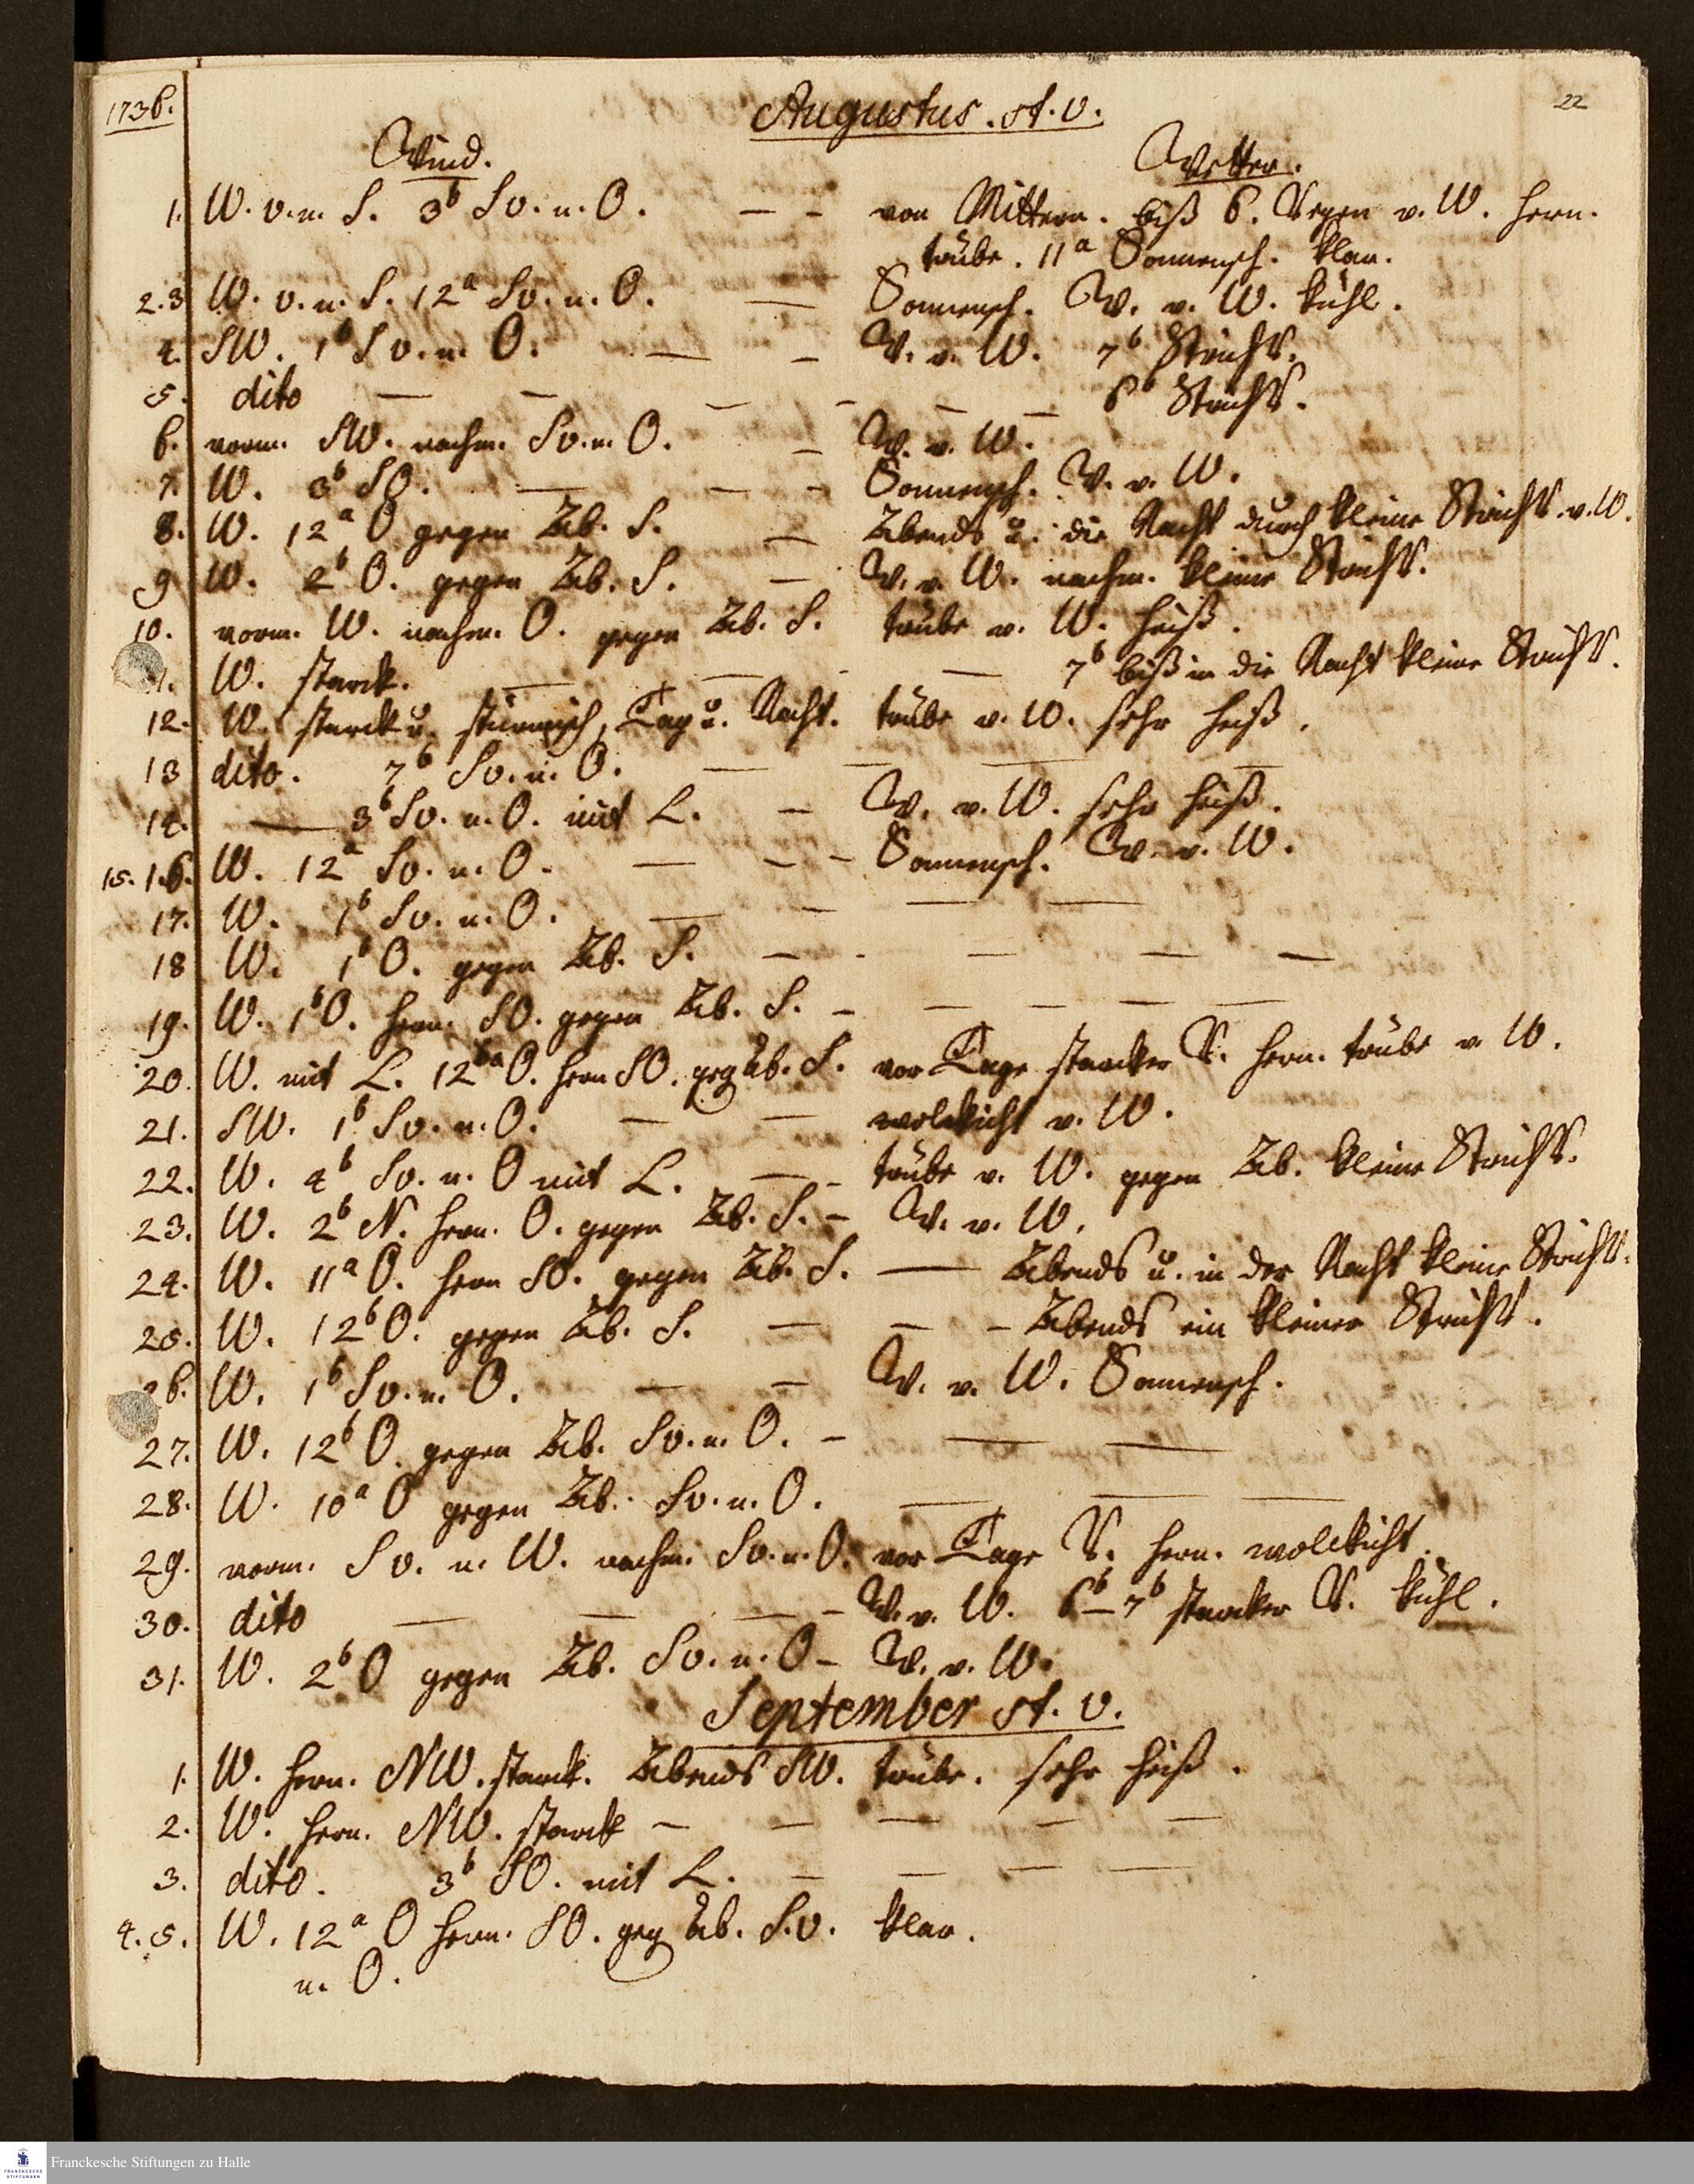 1736.
Augustus. st. v.
22
Wind.
Wetter.
1. W. v. n. S. 3b S v. n. O. — — von Mittern. biß 6. Regen v. W. hern.
trübe. 11a Sonnensch. klar.
2. 3 W. v. n. S. 12a S v. n. O. — Sonnensch. W. v. W. kühl.
4. SW. 1b S v. n. O. — — W. v. W. 7b StrichR.
5. dito — — — — — — 6b StrichR.
6. vorm. SW. nachm. S v. n. O. — W. v. W.
7. W. 3b SO. — — — Sonnensch. W. v. W.
8. W. 12a O gegen Ab. S. — Abends u. die Nacht durch kleine StrichR. v. W.
9 W. 2b O. gegen Ab. S. — W. v. W. nachm. kleine StrichR.
10. vorm. W. nachm. O. gegen Ab. S. trübe v. W. heiß.
11. W. starck. — — — — 7b biß in die Nacht kleine StrichR.
12. W. starck u. stürmisch, Tag u. Nacht. trübe v. W. sehr heiß.
13 dito. 7b S v. n. O. — — — —
14. — 3b S v. n. O. mit L. — W. v. W. sehr heiß.
15. 16. W. 12a S v. n. O. — — — Sonnensch. W. v. W.
17. W. 1b S v. n. O. — — — —
18 W. 1b O. gegen Ab. S. — — — — —
19. W. 1b O. hern. SO. gegen Ab. S. — — — — —
20. W. mit L. 12a O. hern SO. geg Ab. S. vor Tage starcker R. hern. trübe v. W.
21. SW. 1b S v. n. O. — — wolckicht v. W.
22. W. 4b S v. n. O mit L. — — trübe v. W. gegen Ab. kleine StrichR.
23. W. 2b N. hern. O. gegen Ab. S. — W. v. W.
24. W. 11a O. hern SO. gegen Ab. S. — Abends u. in der Nacht kleine StrichR.
25. W. 12b O. gegen Ab. S. — — — Abends ein kleiner StrichR.
26. W. 1b S v. n. O. — — W. v. W. Sonnensch.
27. W. 12b O. gegen Ab. S v. n. O. — — —
28. W. 10a O gegen Ab. S v. n. O. — — —
29. vorm. S v. n. W. nachm. S v. n. O. vor Tage R. hern. wolckicht.
30. dito — — — — W. v. W. 6b—7b starcker R. kühl.
31. W. 2b O gegen Ab. S v. n. O — W. v. W.
September st. v.
1. W. hern. NW. starck. Abends SW. trübe. sehr heiß.
2. W. hern. NW. starck — — — — —
3. dito. 3b SO. mit L. — — — —
4. 5. W. 12a O hern. SO. geg Ab. S. v. klar.
n. O.
FRANCKESCHE STIFTUNGEN
Franckesche Stiftungen zu Halle